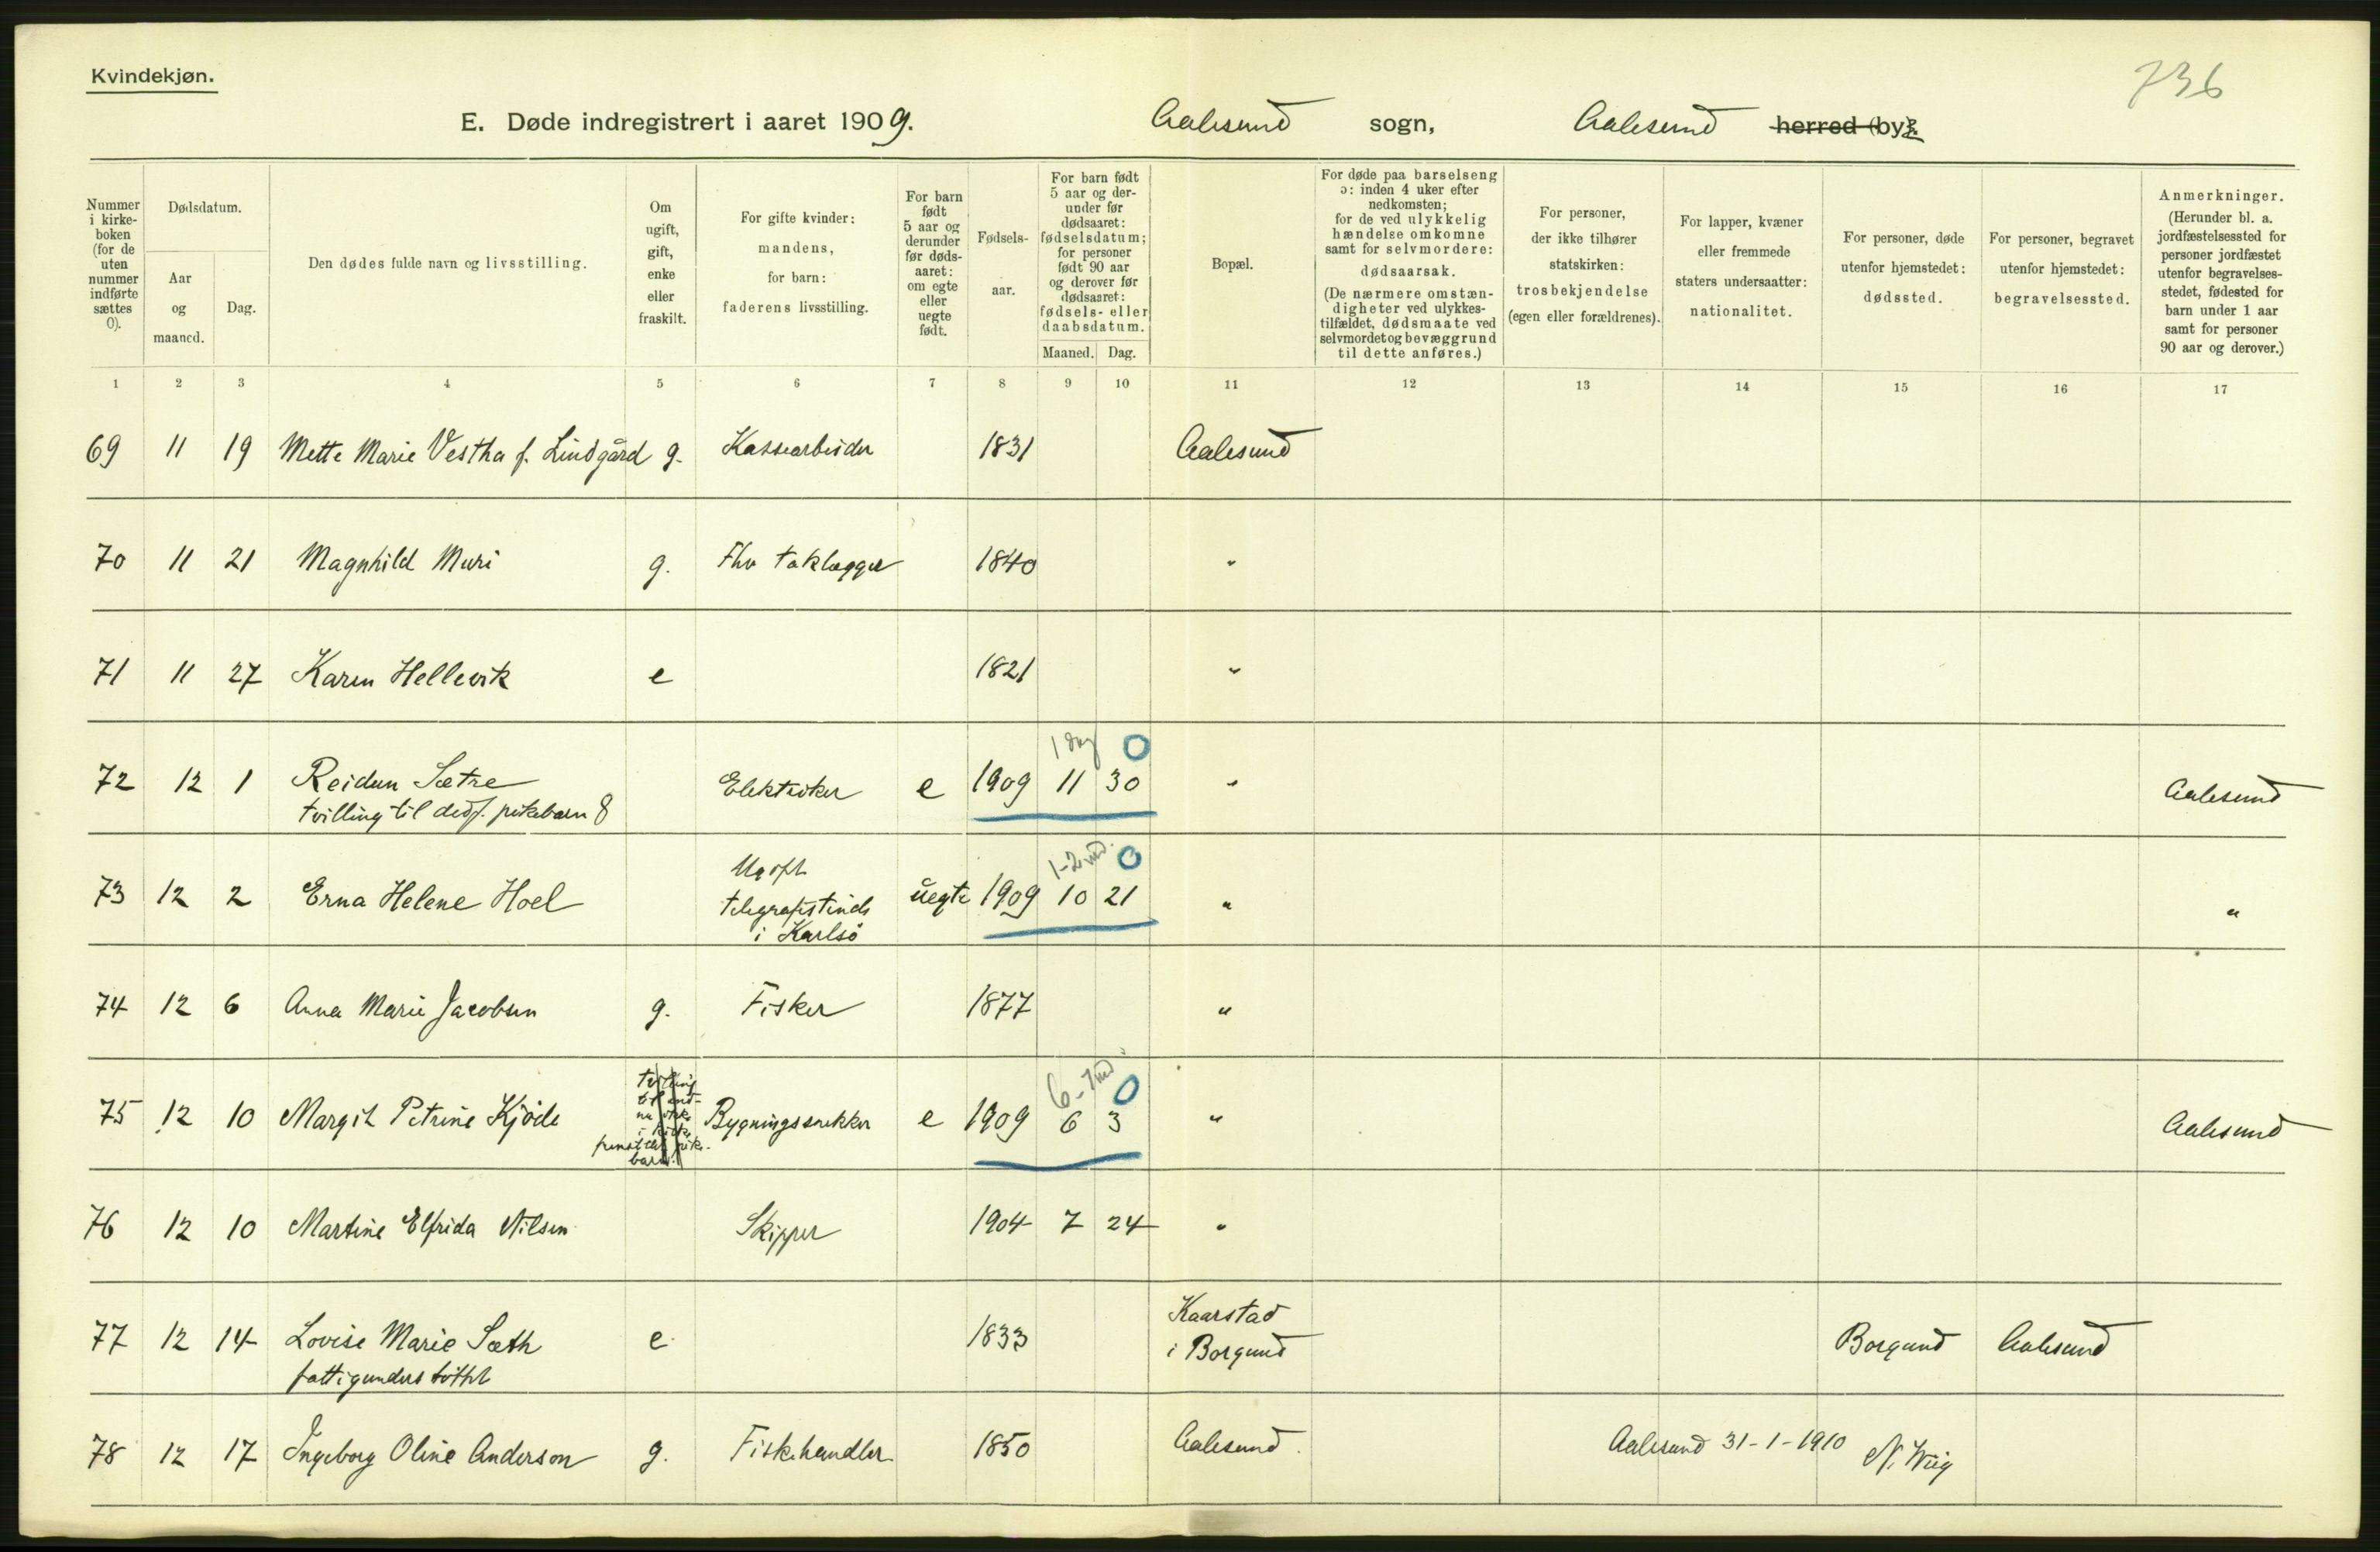 Kvindekjøn.
736
E. Døde indregistrert i aaret 1909. Aalesund sogn, Aalesund herred (by).
Nummer i kirke-boken (for de uten nummer indførte sættes 0).
Dødsdatum.
Aar og maaned.
Dag.
Den dødes fulde navn og livsstilling.
Om ugift, gift, enke eller fraskilt.
For gifte kvinder: mandens, for barn: faderens livsstilling.
For barn født 5 aar og derunder før døds-aaret: om egte eller uegte født.
Fødsels-aar.
For barn født 5 aar og der-under før dødsaaret: fødselsdatum; for personer født 90 aar og derover før dødsaaret: fødsels- eller daabsdatum.
Maaned. Dag.
Bopæl.
For døde paa barselseng ɔ: inden 4 uker efter nedkomsten; for de ved ulykkelig hændelse omkomne samt for selvmordere: dødsaarsak. (De nærmere omstæn-digheter ved ulykkes-tilfældet, dødsmaate ved selvmordet og bevæggrund til dette anføres.)
For personer, der ikke tilhører statskirken: trosbekjendelse (egen eller forældrenes).
For lapper, kvæner eller fremmede staters undersaatter: nationalitet.
For personer, døde utenfor hjemstedet: dødssted.
For personer, begravet utenfor hjemstedet: begravelsessted.
Anmerkninger. (Herunder bl. a. jordfæstelsessted for personer jordfæstet utenfor begravelses-stedet, fødested for barn under 1 aar samt for personer 90 aar og derover.)
1 2 3 4 5 6 7 8 9 10 11 12 13 14 15 16 17
69 11 19 Mette Marie Vestha f. Lindgård g. Kassearbeider 1831 Aalesund
70 11 21 Magnhild Muri g. Fhv taklægger 1840 "
71 11 27 Karen Hellevik e 1821 "
1 dag 0
72 12 1 Reidun Sætre Elektriker e 1909 11 30 " Aalesund
tvilling til dødf. pikebarn 8
1-2 md. 0
Ugift
73 12 2 Erna Helene Hoel telegrafistinde uegte 1909 10 21 " "
i Karlsö
74 12 6 Anna Marie Jacobsen g. Fisker 1877 "
6-7 md 0
75 12 10 Margit Petrine Kjöde Bygningssnekker e 1909 6 3 " Aalesund
76 12 10 Martine Elfrida Nilsen Skipper 1904 7 24 "
Kaarstad
77 12 14 Lovise Marie Sæth e 1833 i Borgund Borgund Aalesund
fattigunderstöttet
78 12 17 Ingeborg Oline Anderson g. Fiskehandler 1850 Aalesund. Aalesund 31-1-1910 N. Wiig